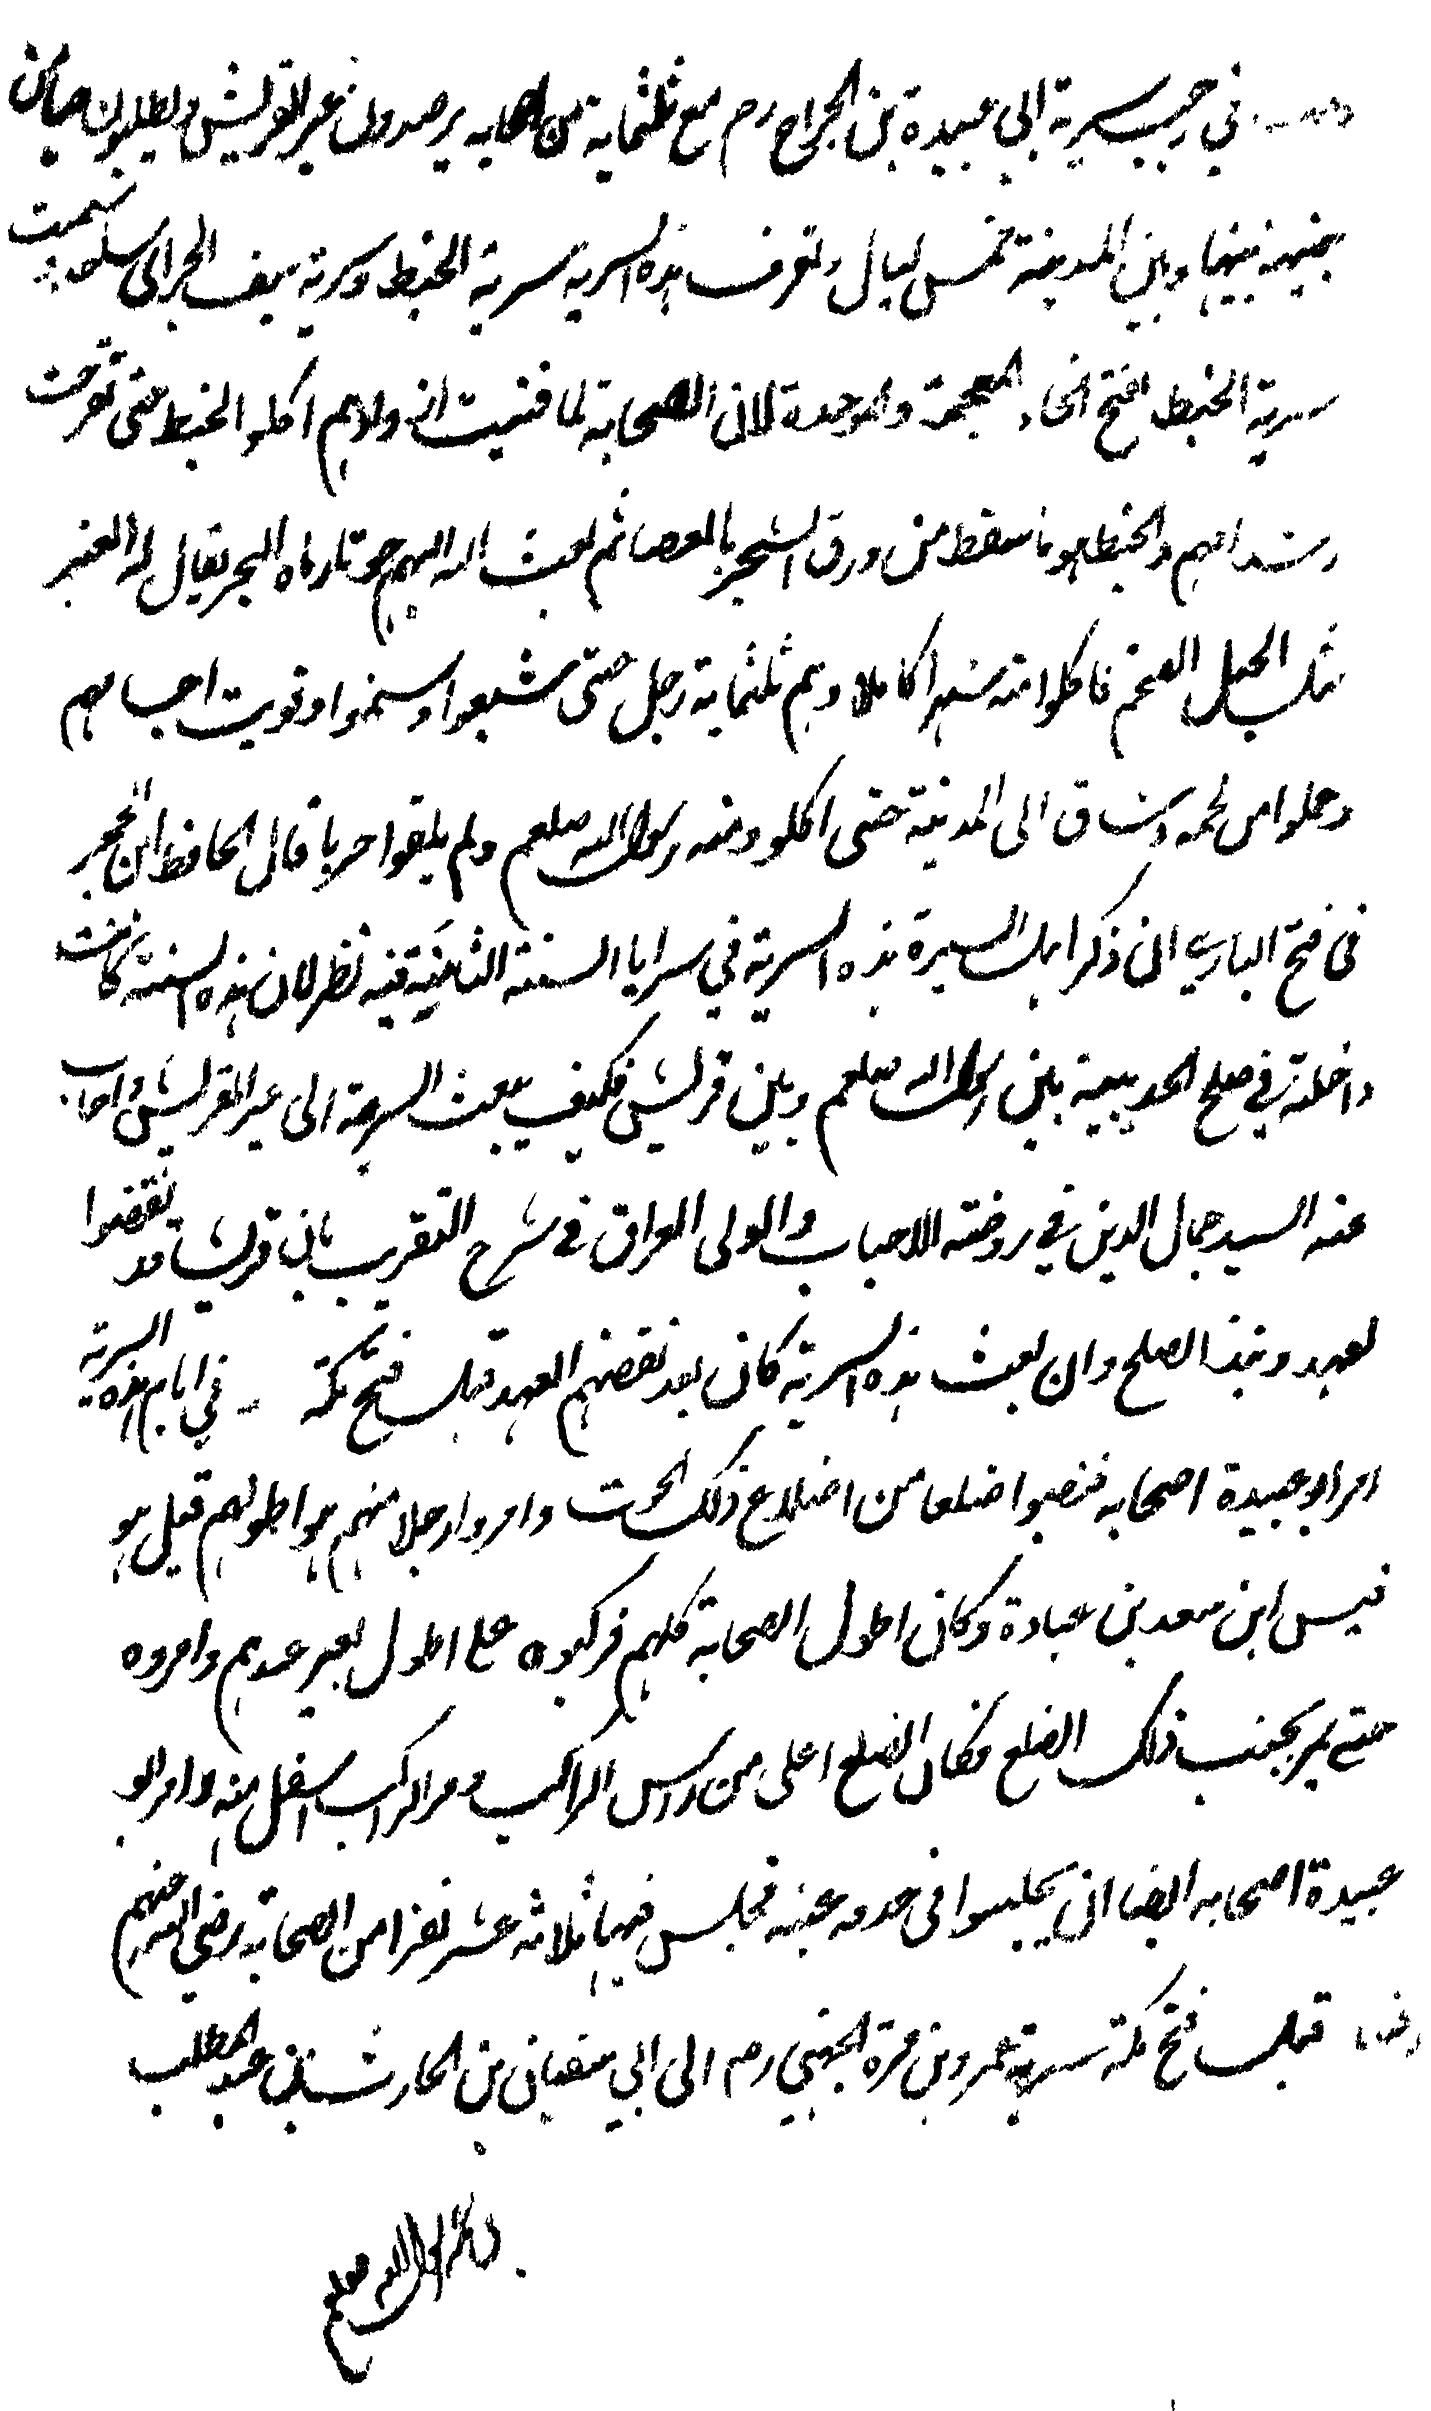 في رجب سرية ابي عبيدة بن الجراح رم مع ثلثماية من اصحابه يرصدون عير القريش ويطلبون حيا من
جهينة بينها وبين المدينة خمس ليال وتعرف هذه السرية سرية الخبط وسرية سيف البحر سميت
سرية الخبط بفتح الخاء المعجمة والموحدة لان الصحابة لما فنيت ازوادهم اكلوا الخبط حتى تقرحت
اشداقهم والخبط هو ما سقط من ورق الشجر بالعصا ثم بعث الله اليهم حوتا رماه البحر يقال له العنبر
مثل الجبل الضخم فاكلوا منه شهرا كاملا وهم ثلثماية رجل حتى شبعوا وسمنوا وقويت اجسامهم
وحملوا من لحمه وشاق الى المدينة حتى اكلوا منه رسول الله صلعم ولم يلقوا حربا قال الحافظ ابن الحجر
في فتح الباري ان ذكر اهل السيرة هذه السرية في سرايا السنة الثامنة فيه نظر لان هذه السنة كانت
داخلة في صلح الحديبية بين رسول الله صلعم وبين قريش فكيف يبعث السرية الى عير القريش واجاب
عنه السيد جمال الدين في روضة الاحباب والولى العراقى في شرح التقريب بان قريشا قد نقضوا
لعهد ونبذ الصلح وان بعث هذه السرية كان بعد نقضهم العهد قبل فتح مكة في ايام هذه السرية
امر ابو عبيدة اصحابه فنصبوا ضلعا من اضلاع ذلك الحوت وامروا رجلا منهم هو اطولهم قيل هو
قيس ابن سعد بن عبادة وكان اطول الصحابة كلهم فركبوه على اطول بعير عندهم وامروه
حتى يمر بجنب ذلك الضلع فكان الضلع اعلى من راس الراكب ومر الراكب اسفل منه وامر ابو
عبيدة اصحابه ايضا ان يجلسوا في حدقة عينه فجلس فيها ثلاثة عشر نفرا من الصحابة رضي الله عنهم
وفيها قبل فتح مكة سرية عمرو بن مرة الجهني رم الى ابي سفيان بن الحارث بن عبد المطلب